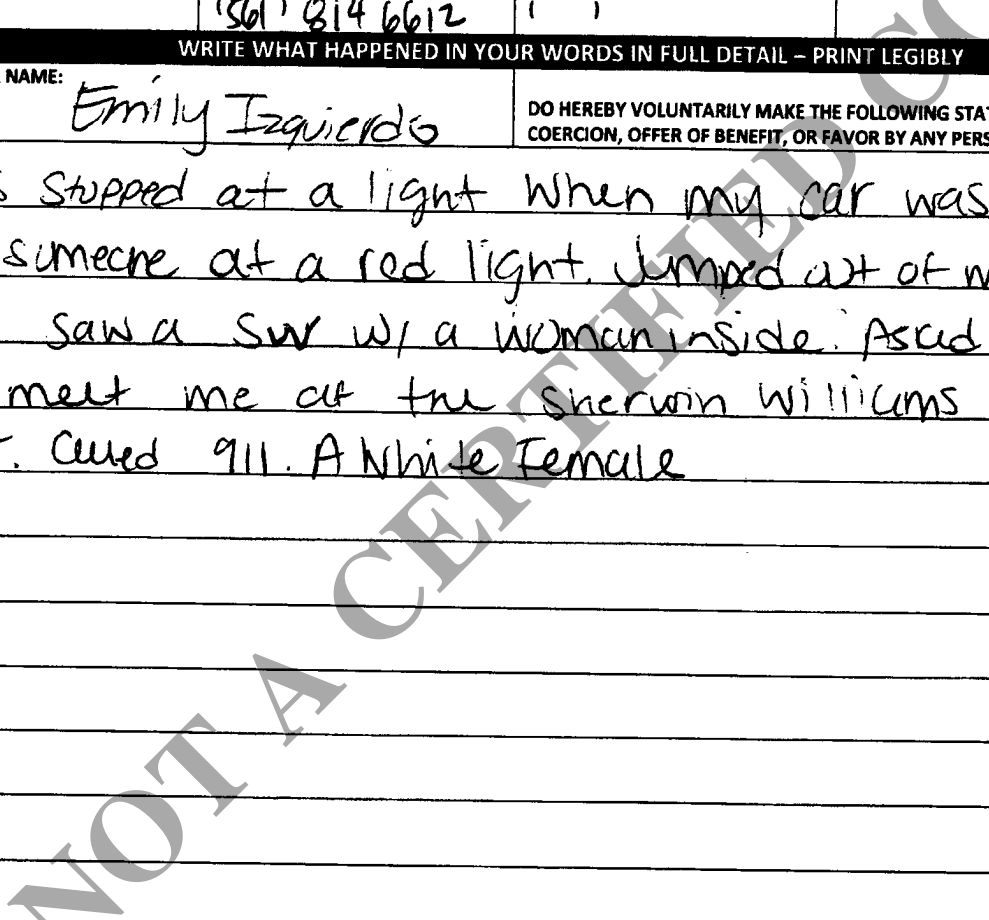 (561) 814 6612 ( )
WRITE WHAT HAPPENED IN YOUR WORDS IN FULL DETAIL – PRINT LEGIBLY
NAME:
Emily Izquierdo
DO HEREBY VOLUNTARILY MAKE THE FOLLOWING STAT
COERCION, OFFER OF BENEFIT, OR FAVOR BY ANY PERS
s stopped at a light when my car was
someone at a red light. Jumped out of m
saw a SUV w/ a woman inside. Asked
meet me at the Sherwin Williams
. Called 911. A White Female
NOT A CERTIFIED CO